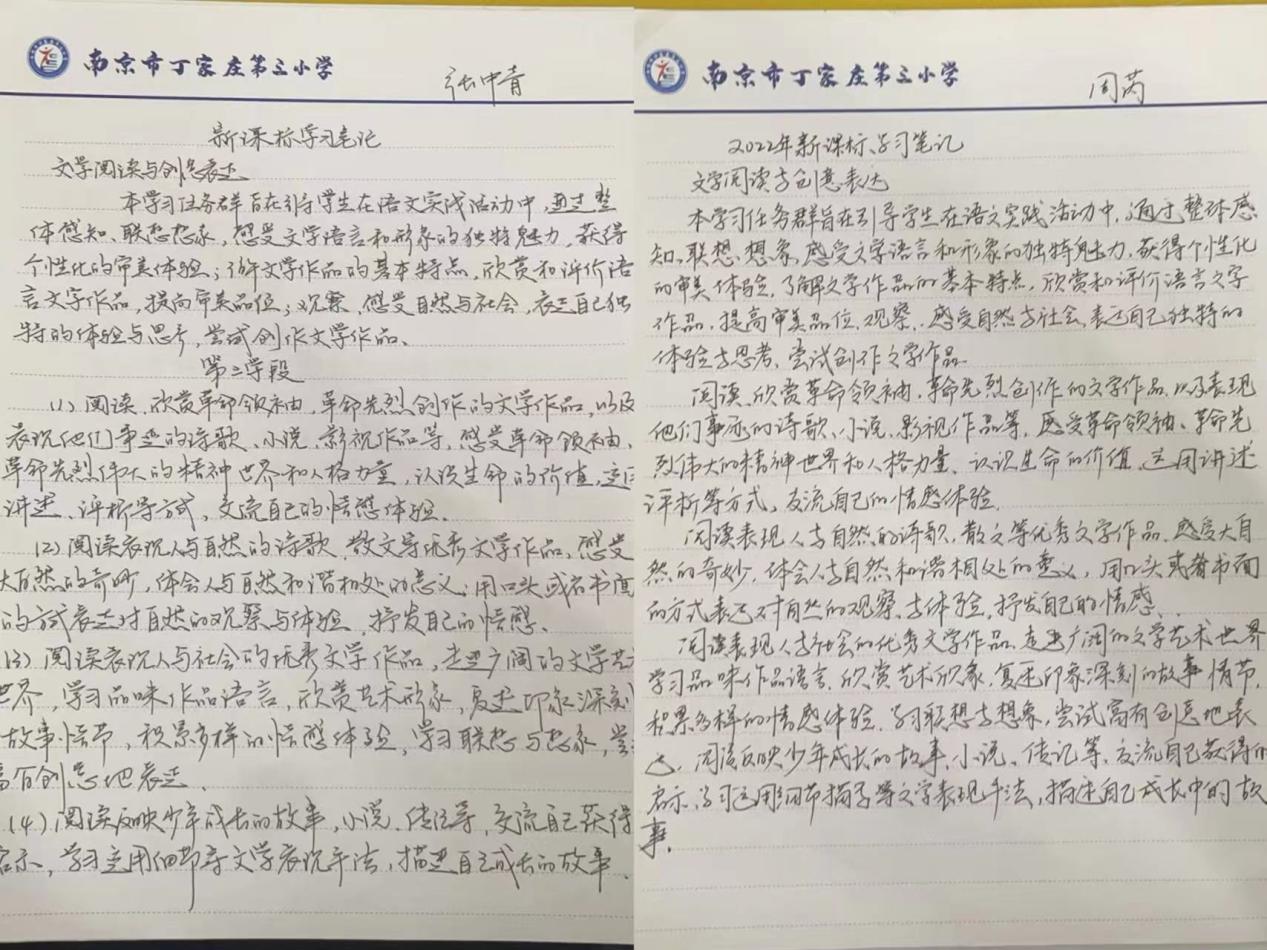 南京市丁家庄第三小学
张中青
新课标学习笔记
文学阅读与创意表达
本学习任务群旨在引导学生在语文实践活动中,通过整
体感知、联想想象,感受文学语言和形象的独特魅力,获得
个性化的审美体验;了解文学作品的基本特点,欣赏和评价语
言文字作品,提高审美品位;观察、感受自然与社会,表达自己独
特的体验与思考,尝试创作文学作品。
第三学段
(1)阅读、欣赏革命领袖、革命先烈创作的文学作品,以及
表现他们事迹的诗歌、小说、影视作品等,感受革命领袖、
革命先烈伟大的精神世界和人格力量,认识生命的价值,运用
讲述、评析等方式,交流自己的情感体验。
(2)阅读表现人与自然的诗歌、散文等优秀文学作品,感受
大自然的奇妙,体会人与自然和谐相处的意义;用口头或者书面
的方式表达对自然的观察与体验,抒发自己的情感。
(3)阅读表现人与社会的优秀文学作品,走进广阔的文学艺
世界,学习品味作品语言,欣赏艺术形象,复述印象深刻
故事情节,积累多样的情感体验,学习联想与想象,尝
富有创意地表达。
(4)阅读反映少年成长的故事,小说、传记等,交流自己获得
启示,学习运用细节等文学表现手法,描述自己成长的故事。
南京市丁家庄第三小学
周芮
2022年新课标学习笔记
文学阅读与创意表达
本学习任务群旨在引导学生在语文实践活动中,通过整体感
知、联想、想象,感受文学语言和形象的独特魅力,获得个性化
的审美体验,了解文学作品的基本特点,欣赏和评价语言文字
作品,提高审美品位,观察、感受自然与社会,表达自己独特的
体验与思考,尝试创作文学作品。
阅读、欣赏革命领袖、革命先烈创作的文学作品,以及表现
他们事迹的诗歌、小说、影视作品等,感受革命领袖、革命先
烈伟大的精神世界和人格力量、认识生命的价值,运用讲述
评析等方式,交流自己的情感体验。
阅读表现人与自然的诗歌、散文等优秀文学作品,感受大自
然的奇妙,体会人与自然和谐相处的意义,用口头或者书面
的方式表达对自然的观察与体验,抒发自己的情感。
阅读表现人与社会的优秀文学作品,走进广阔的文学艺术世界
学习品味作品语言,欣赏艺术形象,复述印象深刻的故事情节,
积累多样的情感体验,学习联想与想象,尝试富有创意地表
达。阅读反映少年成长的故事、小说、传记等,交流自己获得的
启示,学习运用细节描写等文学表现手法,描述自己成长中的故
事。